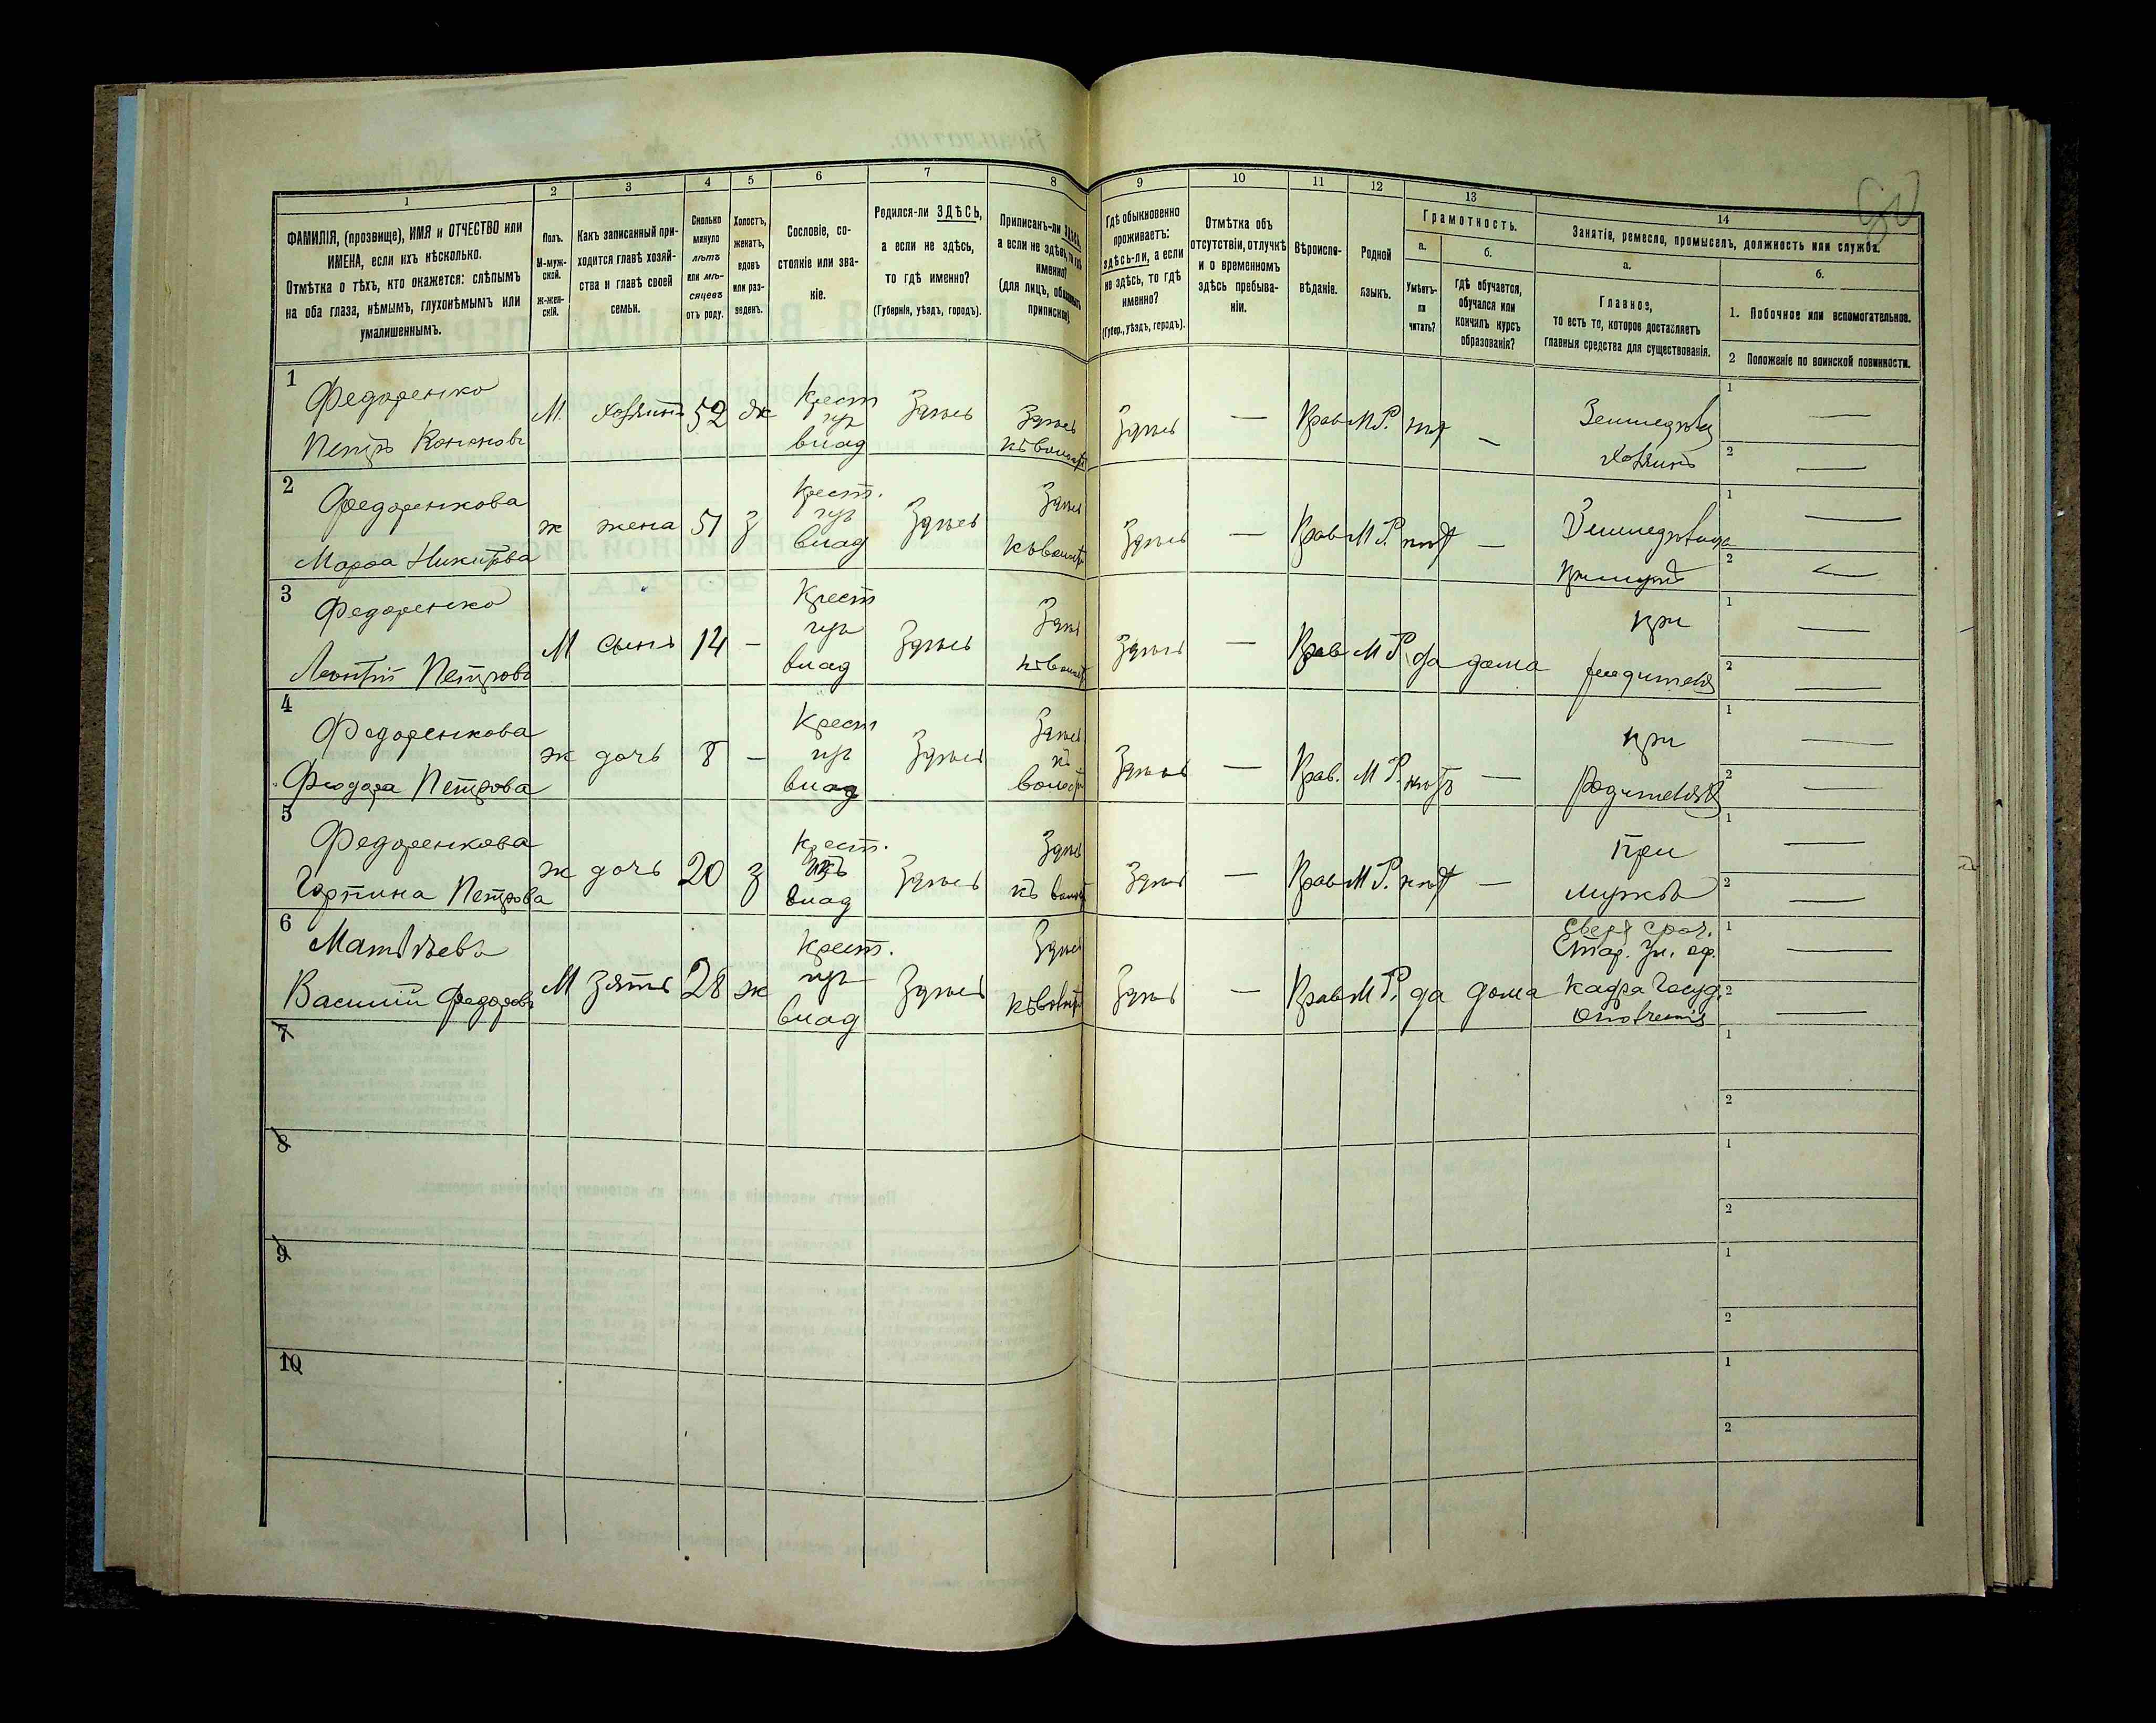 1 2 3 4 5 6 7 8 9 10 11 12 13 14
ФАМИЛІЯ, (прозвище), ИМЯ и ОТЧЕСТВО или
ИМЕНА, если ихъ нѣсколько.
Отмѣтка о тѣхъ, кто окажется: слѣпымъ
на оба глаза, нѣмымъ, глухонѣмымъ или
умалишеннымъ.
Полъ.
М-муж-
ской.
ж-жен-
скій.
Какъ записанный при-
ходится главѣ хозяй-
ства и главѣ своей
семьи.
Сколько
минуло
лѣтъ
или мѣ-
сяцевъ
отъ роду.
Холостъ,
женатъ,
вдовъ
или раз-
веденъ.
Сословіе, со-
стояніе или зва-
ніе.
Родился-ли ЗДѢСЬ,
а если не здѣсь,
то гдѣ именно?
(Губернія, уѣздъ, городъ).
Приписанъ-ли ЗДѢСЬ,
а если не здѣсь, то гдѣ
именно?
(для лицъ, обязанныхъ
припиской).
Гдѣ обыкновенно
проживаетъ:
здѣсь-ли, а если
не здѣсь, то гдѣ
именно?
(Губер., уѣздъ, городъ).
Отмѣтка объ
отсутствіи, отлучкѣ
и о временномъ
здѣсь пребыва-
ніи.
Вѣроиспо-
вѣданіе.
Родной
языкъ.
Грамотность.
а.
Умѣетъ-
ли
читать?
б.
гдѣ обучается,
обучался или
кончилъ курсъ
образованія?
Занятіе, ремесло, промыселъ, должность или служба.
а.
Главное,
то есть то, которое доставляетъ
главныя средства для существованія.
б.
1. Побочное или вспомогательное.
2 Положеніе по воинской повинности.
1
Федоренко
Петръ Кононовъ
М. Хозяинъ 52 ж
Крест
изъ
влад
Здѣсь
Здѣсь
къ волости
Здѣсь — Прав М.Р. нѣт —
Земледѣлец
Хозяинъ
1 —
2 —
2
Федоренкова
Марфа Никитова
ж жена 51 З
Крест.
изъ
влад
Здѣсь
Здѣсь
къ волости
Здѣсь — Прав М Р. нѣт —
1 —
2 —
3
Федоренко
Леонтій Петровъ
М сынъ 14 —
Крест
изъ
влад
Здѣсь
Здѣсь
къ волости
Здѣсь — Прав М Р. да дома
при
родителях
1 —
2 —
4
Федоренкова
Феодора Петрова
ж дочь 8 —
Крест
изъ
влад
Здѣсь
Здѣсь
къ
волости
Здѣсь — Прав. М Р. нѣтъ —
при
родителях
1 —
2 —
5
Федоренкова
Горпина Петрова
ж дочь 20 З
Крест.
изъ
влад
Здѣсь
Здѣсь
къ волости
Здѣсь — Прав М Р. нѣт —
При
мужѣ
1 —
2 —
6
Матвѣевъ
Василій Федоровъ
М зять 28 ж
Крест.
изъ
влад
Здѣсь
Здѣсь
къ волости
Здѣсь — Прав М Р. да дома
Сверх сроч.
Стар. Ун. оф.
Кадра Госуд.
1 —
2 —
7
1
2
8
1
2
9
1
2
10
1
2